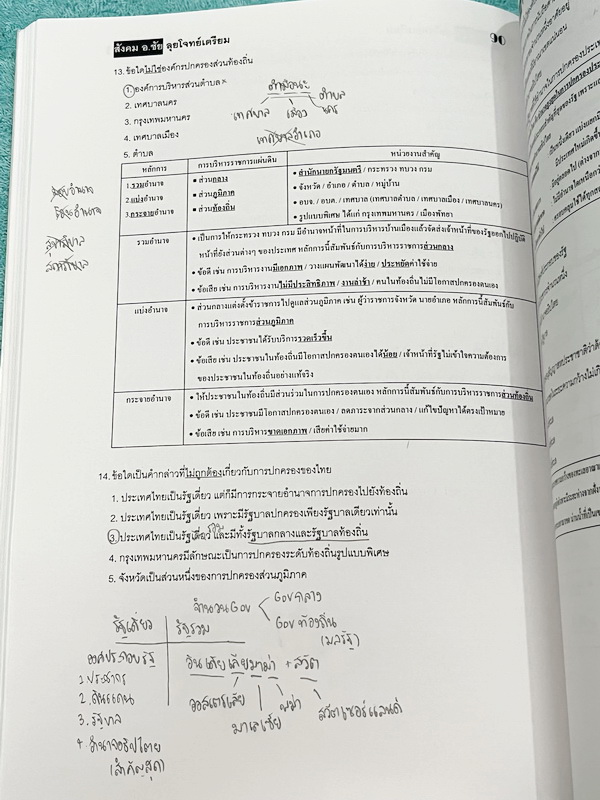 สังคม อ.ชัย ลุยโจทย์เตรียม
90
13. ข้อใดไม่ใช่องค์กรปกครองส่วนท้องถิ่น
1. องค์การบริหารส่วนตำบล
2. เทศบาลนคร
3. กรุงเทพมหานคร
4. เทศบาลเมือง
5. ตำบล
เทศบาล เมือง นคร
ตำบล
หลักการ
การบริหารราชการแผ่นดิน
หน่วยงานสำคัญ
1.รวมอำนาจ
2.แบ่งอำนาจ
3.กระจายอำนาจ
• ส่วนกลาง
• ส่วนภูมิภาค
• ส่วนท้องถิ่น
• สำนักนายกรัฐมนตรี / กระทรวง ทบวง กรม
• จังหวัด / อำเภอ / ตำบล / หมู่บ้าน
• อบจ. / อบต. / เทศบาล (เทศบาลตำบล / เทศบาลเมือง / เทศบาลนคร)
• รูปแบบพิเศษ ได้แก่ กรุงเทพมหานคร / เมืองพัทยา
รวมอำนาจ
• เป็นการให้กระทรวง ทบวง กรม มีอำนาจหน้าที่ในการบริหารบ้านเมืองแล้วจัดส่งเจ้าหน้าที่ของรัฐออกไปปฏิบัติ
หน้าที่ยังส่วนต่างๆ ของประเทศ หลักการนี้สัมพันธ์กับการบริหารราชการส่วนกลาง
• ข้อดี เช่น การบริหารงานมีเอกภาพ / วางแผนพัฒนาได้ง่าย / ประหยัดค่าใช้จ่าย
• ข้อเสีย เช่น การบริหารงานไม่มีประสิทธิภาพ / งานล่าช้า / คนในท้องถิ่นไม่มีโอกาสปกครองตนเอง
แบ่งอำนาจ
• ส่วนกลางแต่งตั้งข้าราชการไปดูแลส่วนภูมิภาค เช่น ผู้ว่าราชการจังหวัด นายอำเภอ หลักการนี้สัมพันธ์กับ
การบริหารราชการส่วนภูมิภาค
• ข้อดี เช่น ประชาชนได้รับบริการรวดเร็วขึ้น
• ข้อเสีย เช่น ประชาชนในท้องถิ่นมีโอกาสปกครองตนเองได้น้อย / เจ้าหน้าที่รัฐไม่เข้าใจความต้องการ
ของประชาชนในท้องถิ่นอย่างแท้จริง
กระจายอำนาจ
• ให้ประชาชนในท้องถิ่นมีส่วนร่วมในการปกครองตนเอง หลักการนี้สัมพันธ์กับการบริหารราชการส่วนท้องถิ่น
• ข้อดี เช่น ประชาชนมีโอกาสปกครองตนเอง / ลดภาระจากส่วนกลาง / แก้ไขปัญหาได้ตรงเป้าหมาย
• ข้อเสีย เช่น การบริหารขาดเอกภาพ / เสียค่าใช้จ่ายมาก
14. ข้อใดเป็นคำกล่าวที่ไม่ถูกต้องเกี่ยวกับการปกครองของไทย
1. ประเทศไทยเป็นรัฐเดี่ยว แต่ก็มีการกระจายอำนาจการปกครองไปยังท้องถิ่น
2. ประเทศไทยเป็นรัฐเดี่ยว เพราะมีรัฐบาลปกครองเพียงรัฐบาลเดียวเท่านั้น
3. ประเทศไทยเป็นรัฐเดี่ยว และมีทั้งรัฐบาลกลางและรัฐบาลท้องถิ่น
4. กรุงเทพมหานครมีลักษณะเป็นการปกครองระดับท้องถิ่นรูปแบบพิเศษ
5. จังหวัดเป็นส่วนหนึ่งของการปกครองส่วนภูมิภาค
จำนวน Gov
Gov กลาง
Gov ท้องถิ่น
(มลรัฐ)
รัฐเดี่ยว
รัฐรวม
องค์ประกอบรัฐ
1. ประชากร
2. ดินแดน
3. รัฐบาล
4 อำนาจอธิปไตย
(สำคัญสุด)
อินเดีย เลีย มาม่า + สวิต
ออสเตรเลีย
พม่า
มาเลเซีย
สวิตเซอร์แลนด์